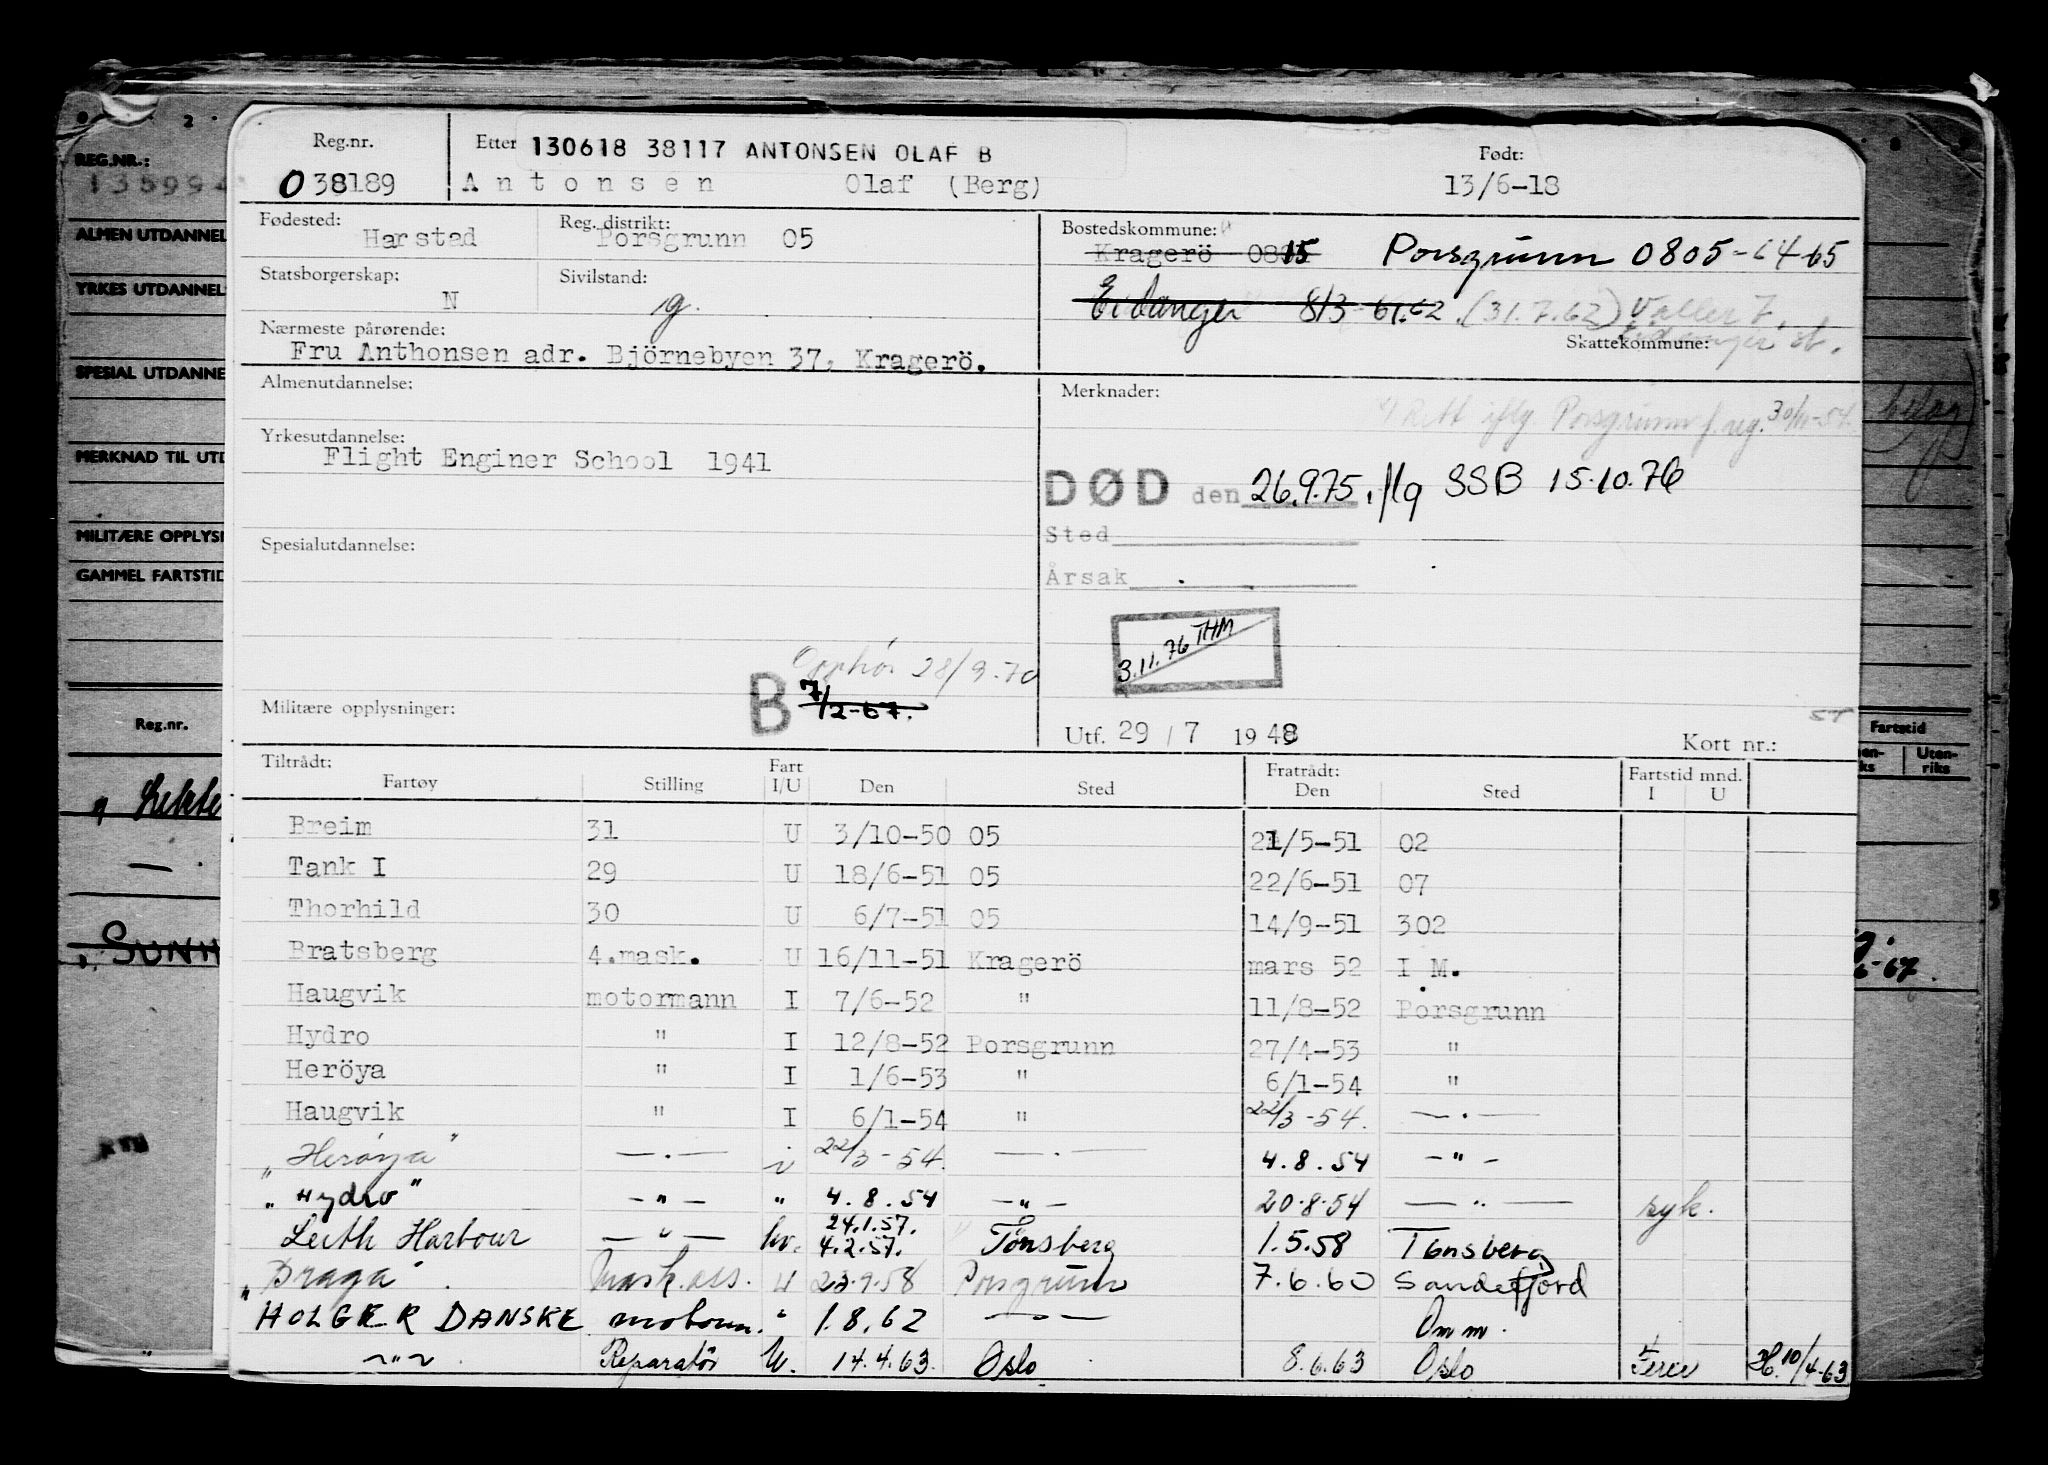 REG.NR.:
ALMEN UTDANNEL
YRKES UTDANNEL
SPESIAL UTDANNE
MERKNAD TIL UTD
MILITÆRE OPPLYSI
GAMMEL FARTSTID
Reg.nr.
SUNH
Reg.nr. Etter 130618 38117 ANTONSEN OLAF B Født:
038189 Antonsen Olaf (Berg) 13/6-18
Fødested: Harstad Reg. distrikt: Porsgrunn 05 Bostedskommune: Kragerö 0815 Porsgrunn 0805-64-65
Statsborgerskap: N Sivilstand: g. Eidanger 813-61.62 (31.7.62)
Nærmeste pårørende: Skattekommune:
Fru Anthonsen adr. Björnebyen 37, Kragerö.
Almenutdannelse: Merknader:
Rett iflg Porsgrunn f.reg. 30/11-54.
Yrkesutdannelse:
Flight Enginer School 1941
DØD den 26.9.75, iflg SSB 15.10.76
Sted
Spesialutdannelse:
Årsak
3.11.76 THM
Opphör 28/9.70
B 7/2-67.
Militære opplysninger:
Utf. 29/7 1948 Kort nr.:
Tiltrådt: Fratrådt:
Fartøy Stilling Fart I/U Den Sted Den Sted Fartstid mnd. I U
Breim 31 U 3/10-50 05 21/5-51 02
Tank I 29 U 18/6-51 05 22/6-51 07
Thorhild 30 U 6/7-51 05 14/9-51 302
Bratsberg 4.mask. U 16/11-51 Kragerö mars 52 I M.
Haugvik motormann I 7/6-52 " 11/8-52 Porsgrunn
Hydro " I 12/8-52 Porsgrunn 27/4-53 "
Heröya " I 1/6-53 " 6/1-54 "
Haugvik " I 6/1-54 " 22/3-54. —·—
"Herøya" —·— i 22/3-54. —·— 4.8.54 -"-
"Hydro" -"- " 4.8.54 -"- 20.8.54 —"— syk.
24.1.57.
Leith Harbour —"— hv. 4.2.57. Tønsberg 1.5.58 Tønsberg
"Draga" Mask.ass. U 23.9.58 Porsgrunn 7.6.60 Sandefjord
HOLGER DANSKE motorm. " 1.8.62 —"— Omm.
-"- Reparatör U. 14.4.63. Oslo 8.6.63 Oslo Ferie 10/4-63
Fartstid
Uten-
riks